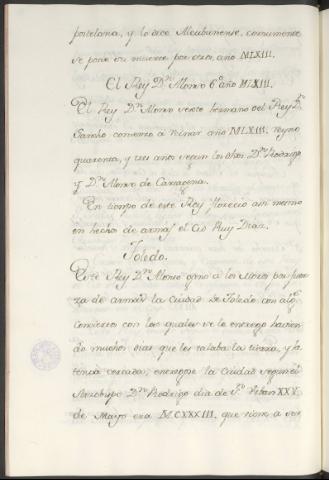 portelana, y lo dice Meubunense, comunmente
se pone su muerte por otros, año MLXIII.
El Rey Dⁿ Alonso 6º año MLXIII.
El Rey Dⁿ Alonso sexto hermano del Rey Dⁿ
Sancho comenzo a reinar año MLXIII. reyno
quarenta, y tres años segun los obos. Dⁿ Rodrigo
y Dⁿ Alonso de Cartagena.
En tiempo de este Rey florecio assi mismo
en hechos de armas el Cid Ruy Diaz.
Toledo.
Este Rey Dⁿ Alonso gano a los Moros por fuer
za de armas la Ciudad de Toledo con algs
convierto con los quales se le entrego havien
do muchos dias que les talaba la tierra, y la
tenia cercada, entrogose la Ciudad segun el
Arzobispo Dⁿ Rodrigo dia de Sⁿ Urban XXV
de Mayo era MCXXXIII, que viene a ser